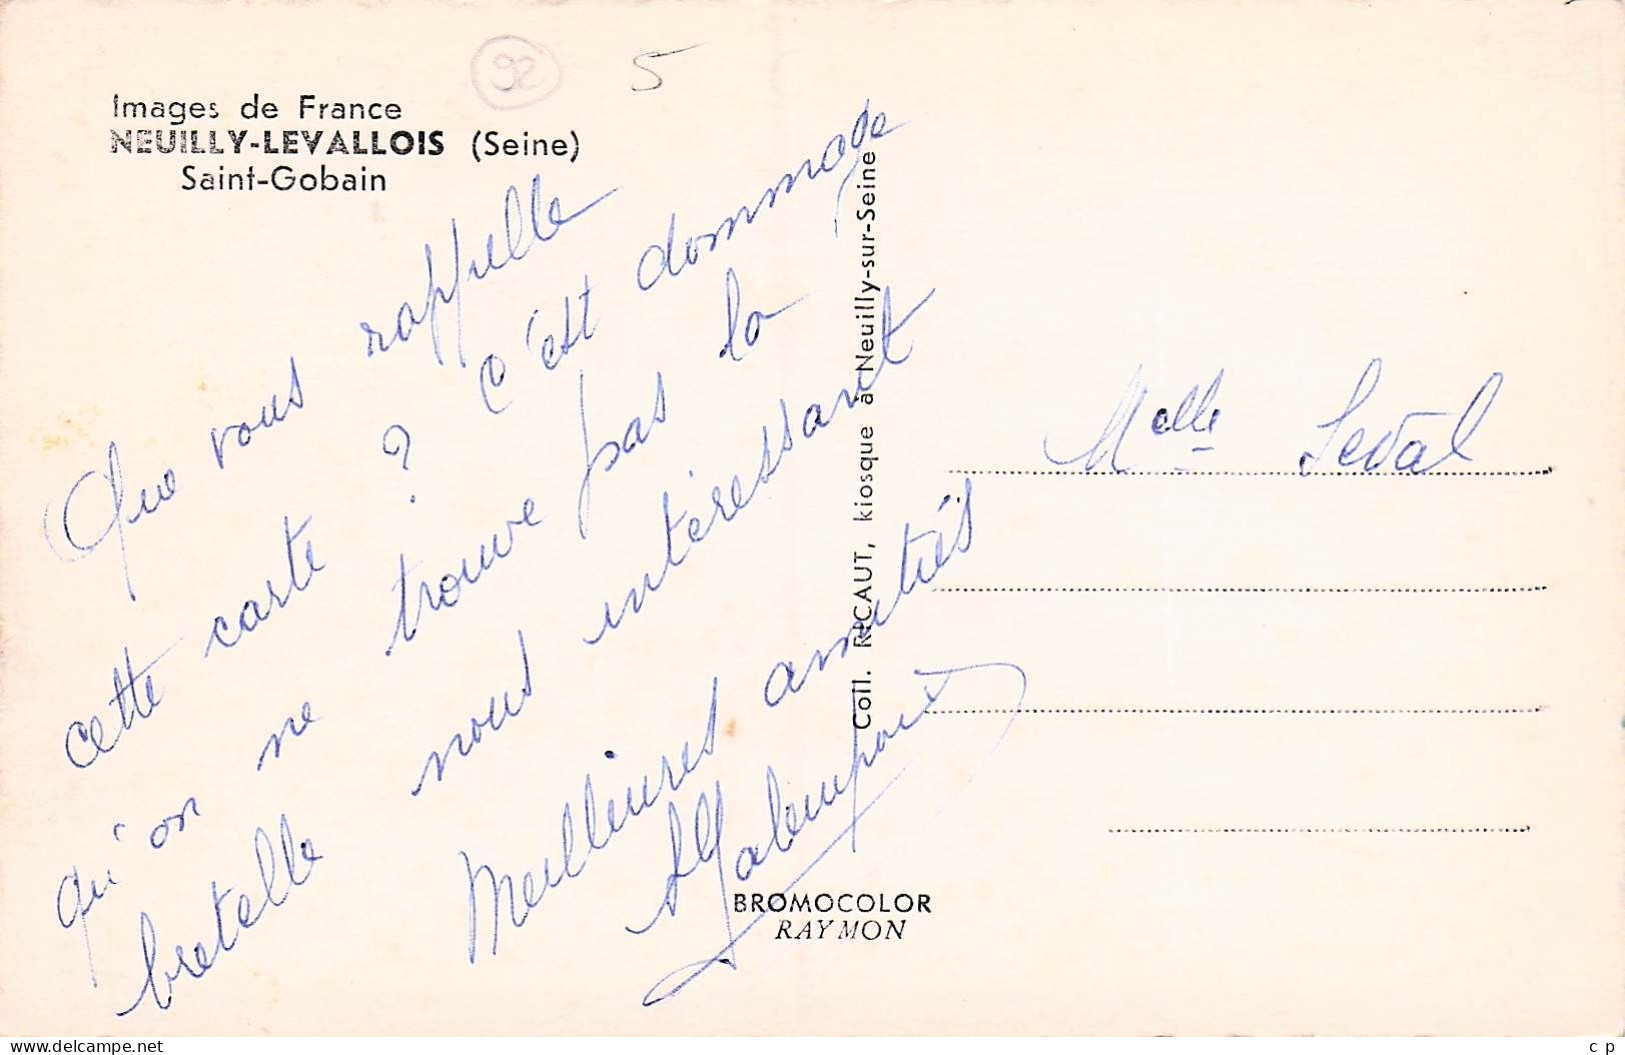 92
5
Images de France
NEUILLY-LEVALLOIS (Seine)
Saint-Gobain
Que vous rappelle
cette carte ? C'est dommage
qu'on ne trouve pas la
bretelle nous intéressant
Meilleures amitiés
Melle Leval
Coll. RICAUT, kiosque à Neuilly-sur-Seine
BROMOCOLOR
RAYMON
delcampe.net
c p